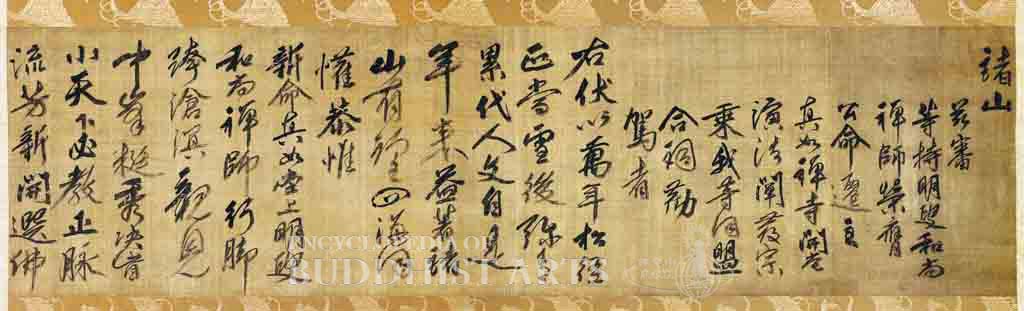 諸山
茲審
等持明叟和尚
禅師榮膺
公命遷
真如禅寺開堂
演法闡發宗
乗我等同盟
合詞勸
駕者
右伏以萬年松經
正當雪後弥
累代人文自是
年来益著
山有四海同
懽恭惟
新命真如堂上明叟
和尚禅師行脚
跨滄溟親見
中峯挺秀決
小天下必教正脉
流芳新開選佛
ENCYCLOPEDIA OF
BUDDHIST ARTS